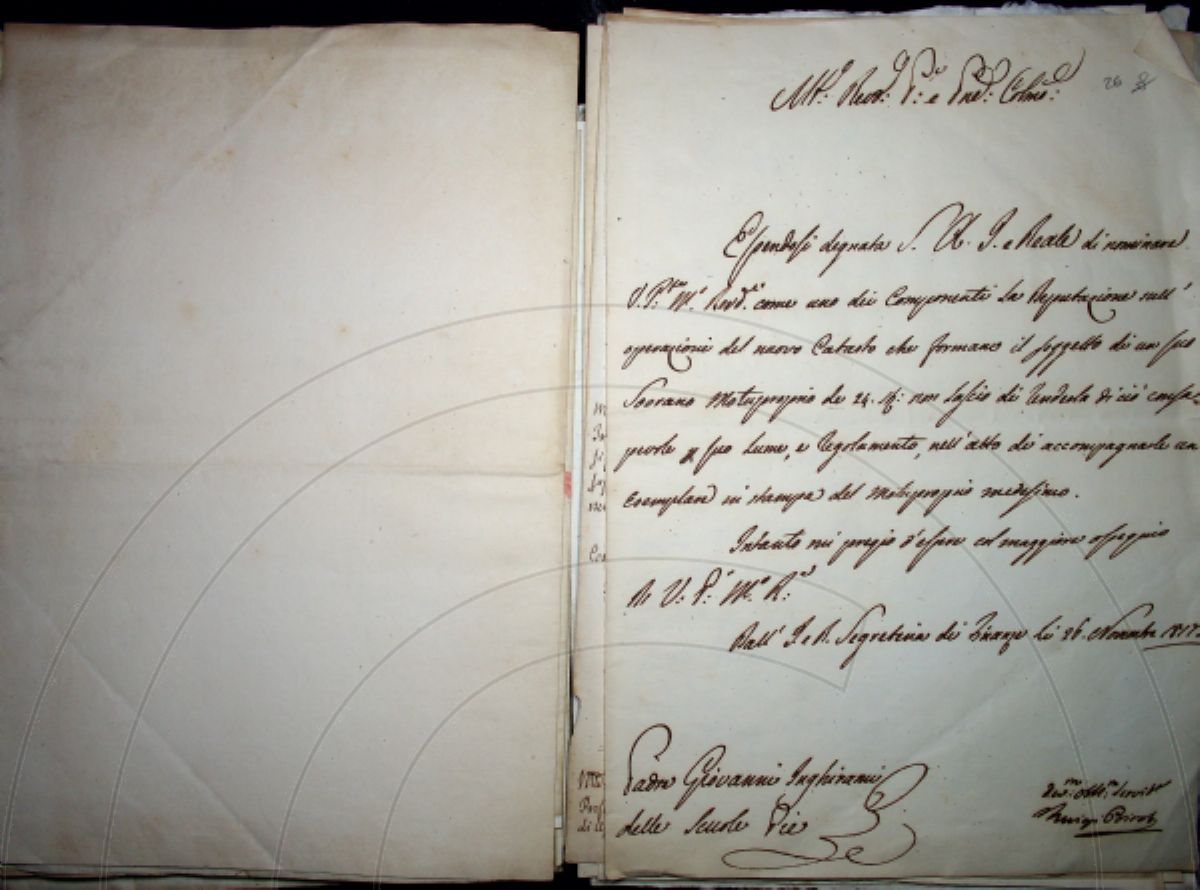 26
Mto. Revdo. Pre. e Pne. Colmo.
Essendosi degnata S. A. I. e Reale di nominare
V. P. M. Revd. come uno dei Componenti la Deputazione sull'
operazioni del nuovo Catasto che formano il soggetto di un suo
Sovrano Motuproprio de 24. non lascio di renderla di ciò consa=
pevole p suo lume, e regolamento, nell'atto di accompagnarle un
Esemplare in stampa del Motuproprio medesimo.
Intanto mi pregio d'essere col maggiore ossequio
Di V: P: M. R.
Dall' I. e R. Segreteria di Finanze li 26. Novembre 1817.
Padre Giovanni Inghirami
delle Scuole Pie
Dev. Obb. Servit.